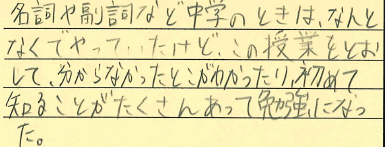 名詞や副詞など中学のときは、なんと
なくでやっていたけど、この授業をとお
して、分からなかったとこがわかったり、初めて
知ることがたくさんあって勉強になっ
た。